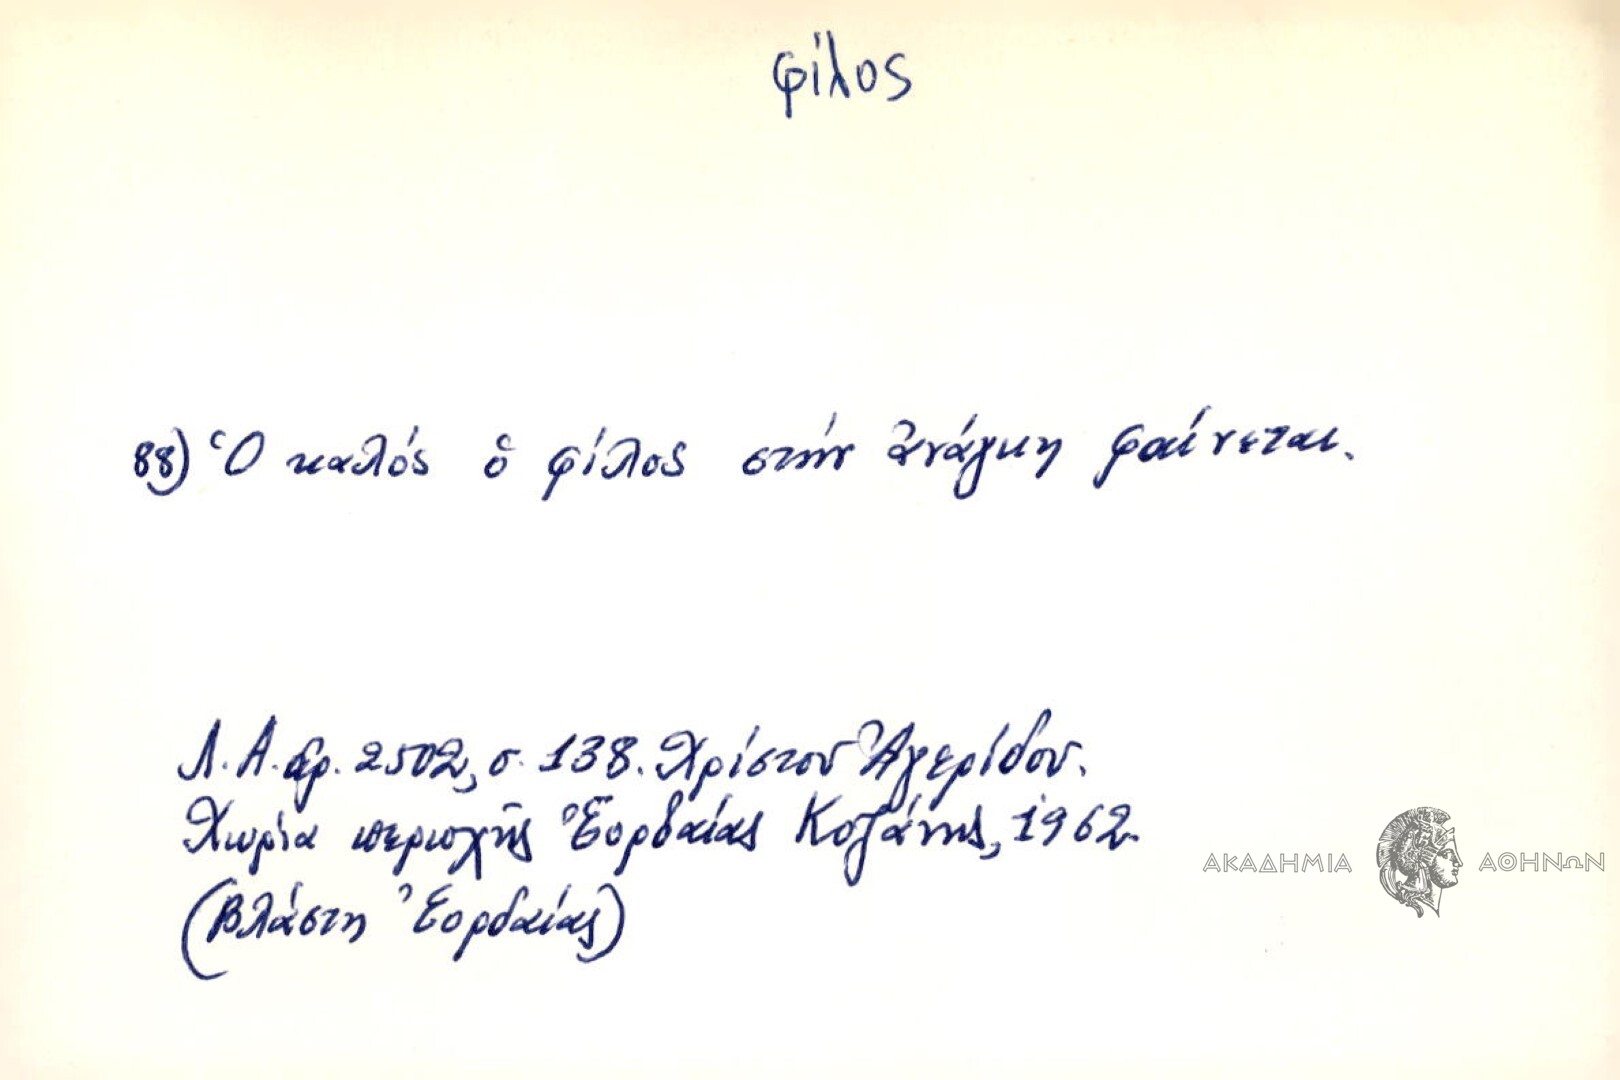 φίλος
88) Ὁ καλός ὁ φίλος στήν ἀνάγκη φαίνεται.
Λ.Α. ἀρ. 2502, σ. 138. Χρίστου Ἀγερίδου.
Χωρία περιοχῆς Ἐορδαίας Κοζάνης, 1962.
(Βλάστη Ἐορδαίας)
ΑΚΑΔΗΜΙΑ ΑΘΗΝΩΝ